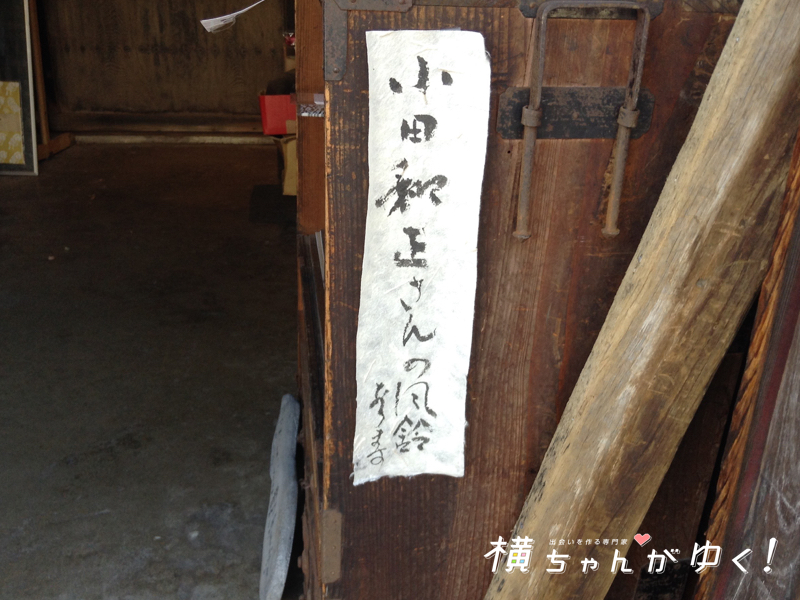 小田和正さんの風鈴
あります
出会いを作る専門家
横ちゃんがゆく!